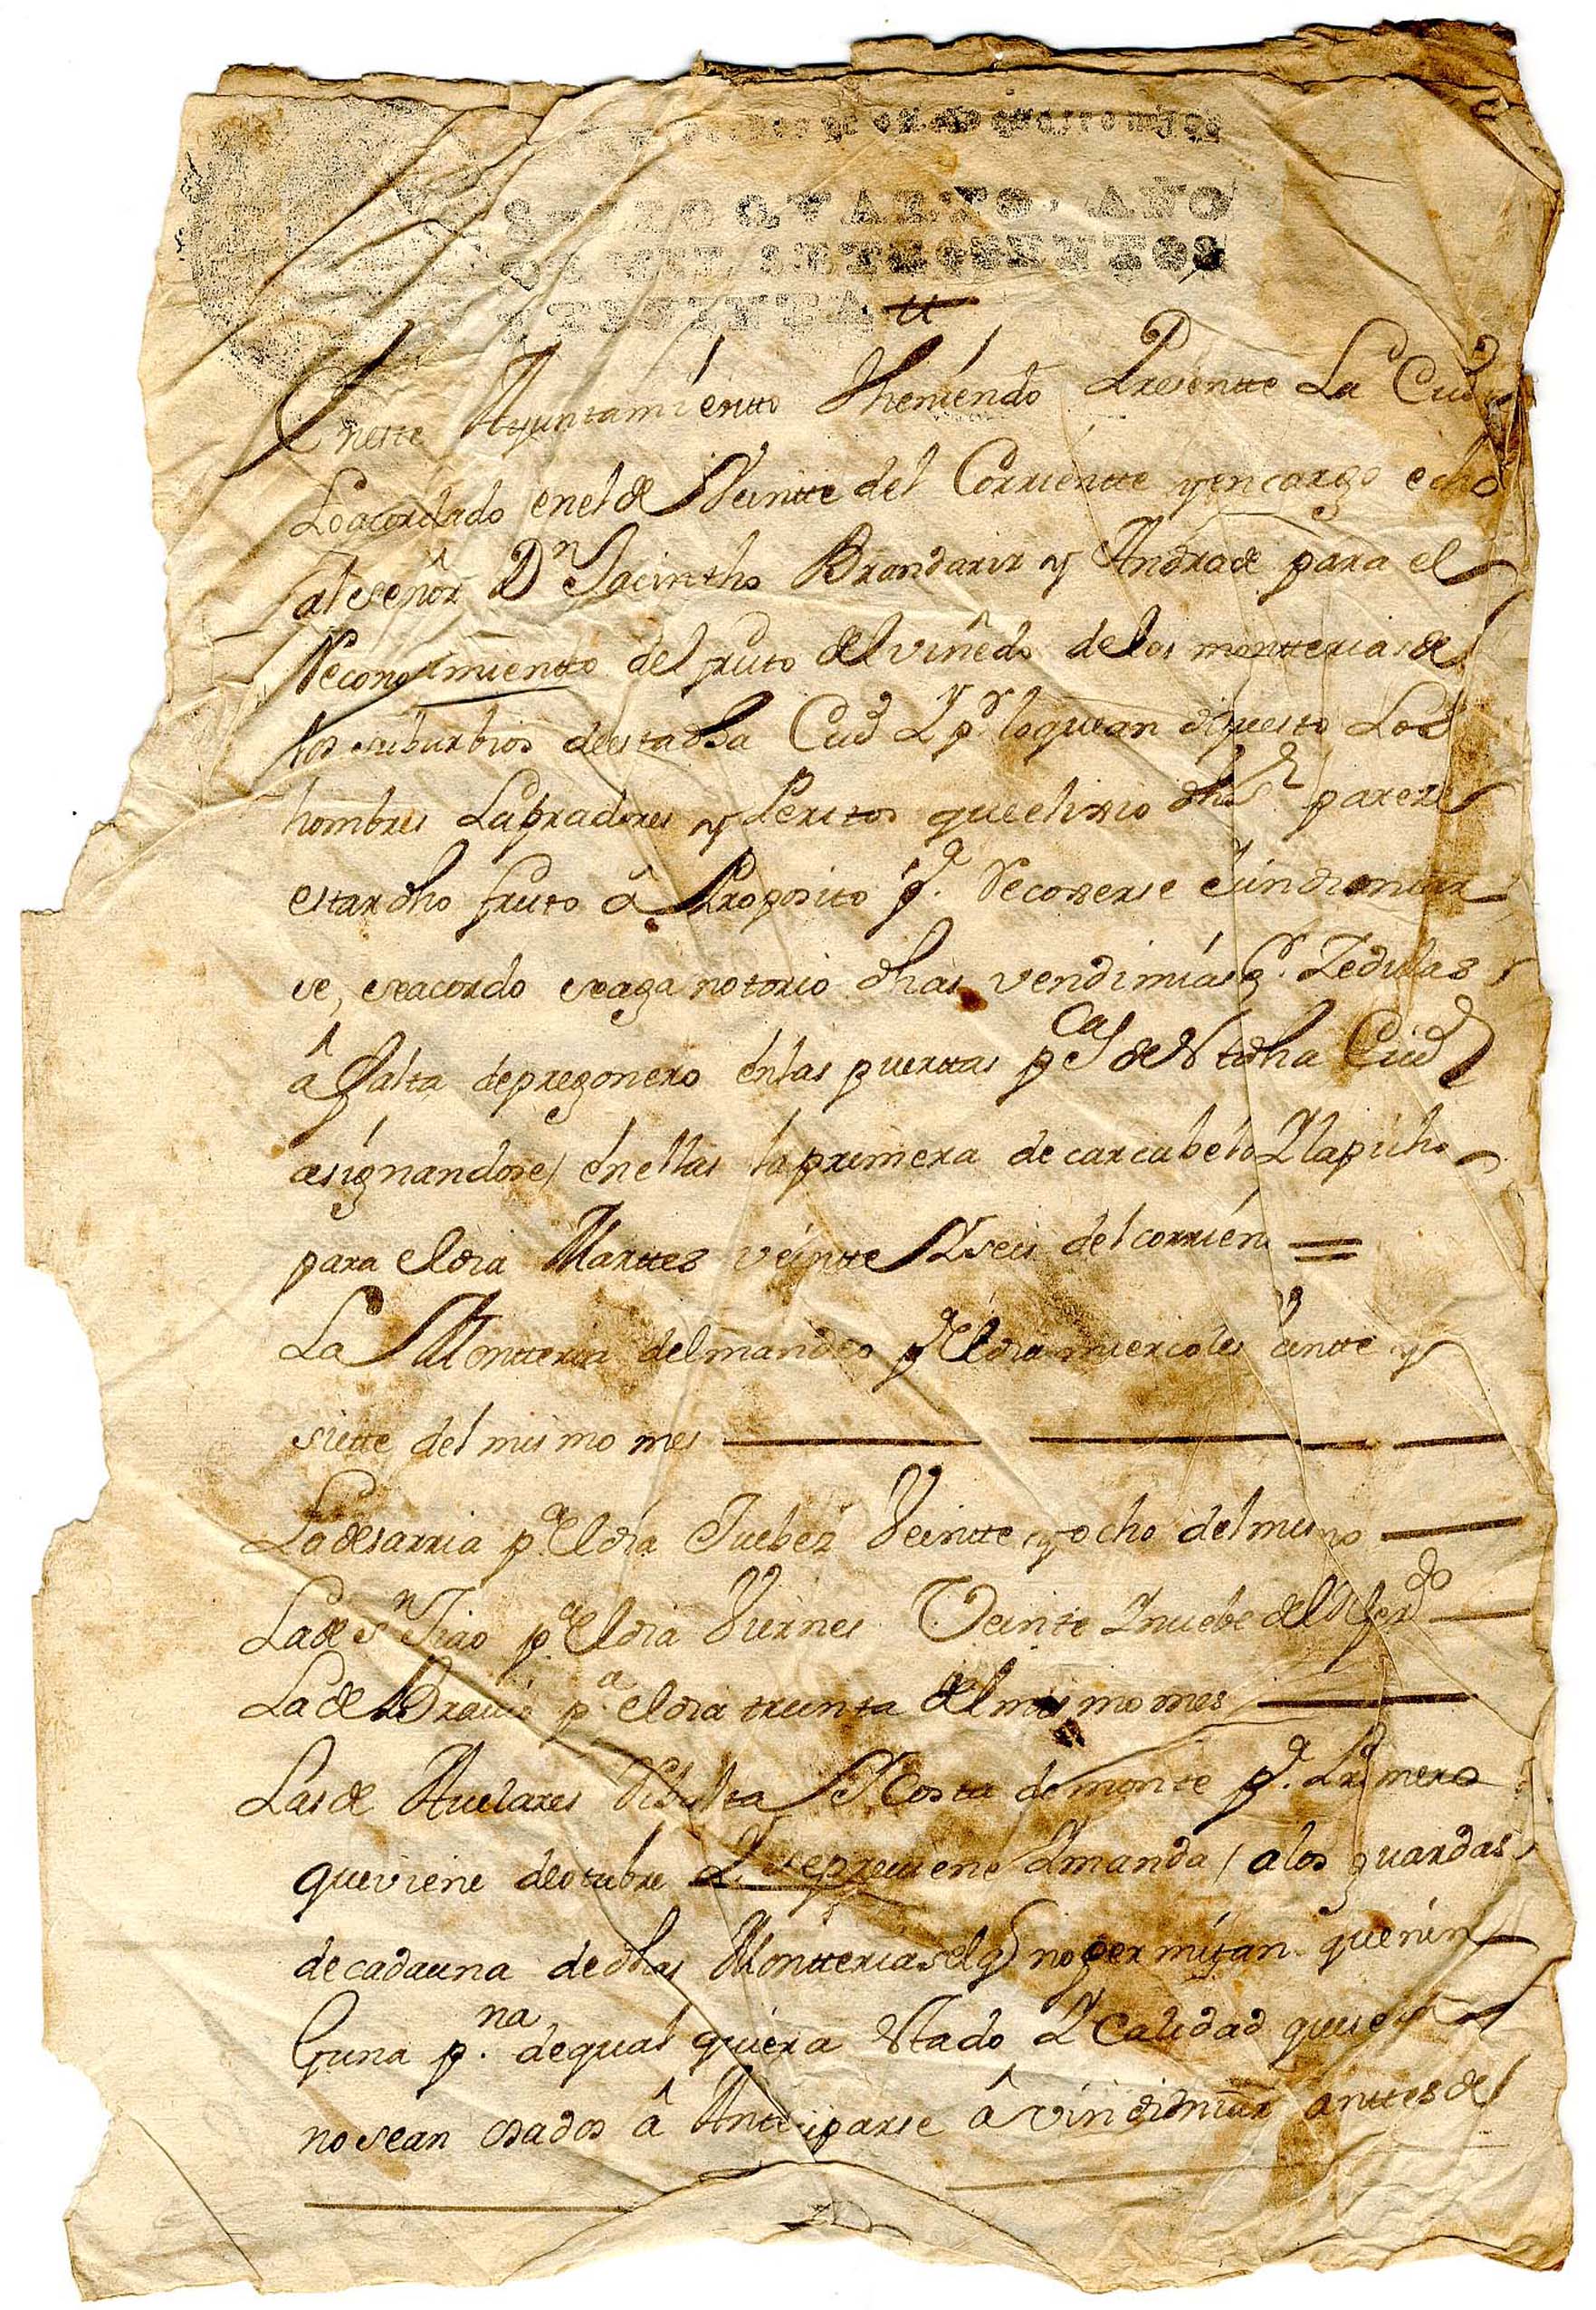 SELLO QVARTO, AÑO
DE MIL SETECIENTOS
Y TREINTA.
Eneste Ayuntamientto theniendo Presentte La Ciud
Loacordado enelde Veintte del Corrientte yencargo echo
alseñor Dn Jacintho Brandariz y Andrade para el
Reconosimientto del fruto delviñedo delas montterias de
los suburbios deestadha Ciud Y pr loquean dipuesto Los
hombres Labradores y Peritos queelixio dho Sr pareze
estardho fruto â Proposito pa. Recoxerse eundimiar
se, seacordo seaga notorio dhas vendimias pr. Zedulas
â falta depregonero enlas puerttas pCas desta dha Ciud
asignandose enellas laprimera de carcabelo Ylapicho
para eldia Marttes veintte Yseis delcorrien =
La Montteria delmandeo pa eldia miercoles veintte y
siette del mismo mes
Ladesarria pa eldia Juebes Veintte yocho delmismo
Lade Sn Tiao pa eldia Viernes Veinte Ynuebe del Referdo
Lade Brauio pa. eldia treinta delmismo mes
Lasde Auelares Ribilta YCosta demonte pa. Primero
queviene deotubre Y sepreuiene Ymanda a los guardas
decadauna dedhas Montterias el q no permitan que nin
Guna pna. dequal quiera Estado Y Calidad quesea
nosean osados â Anticiparse â vindimiar anttes de